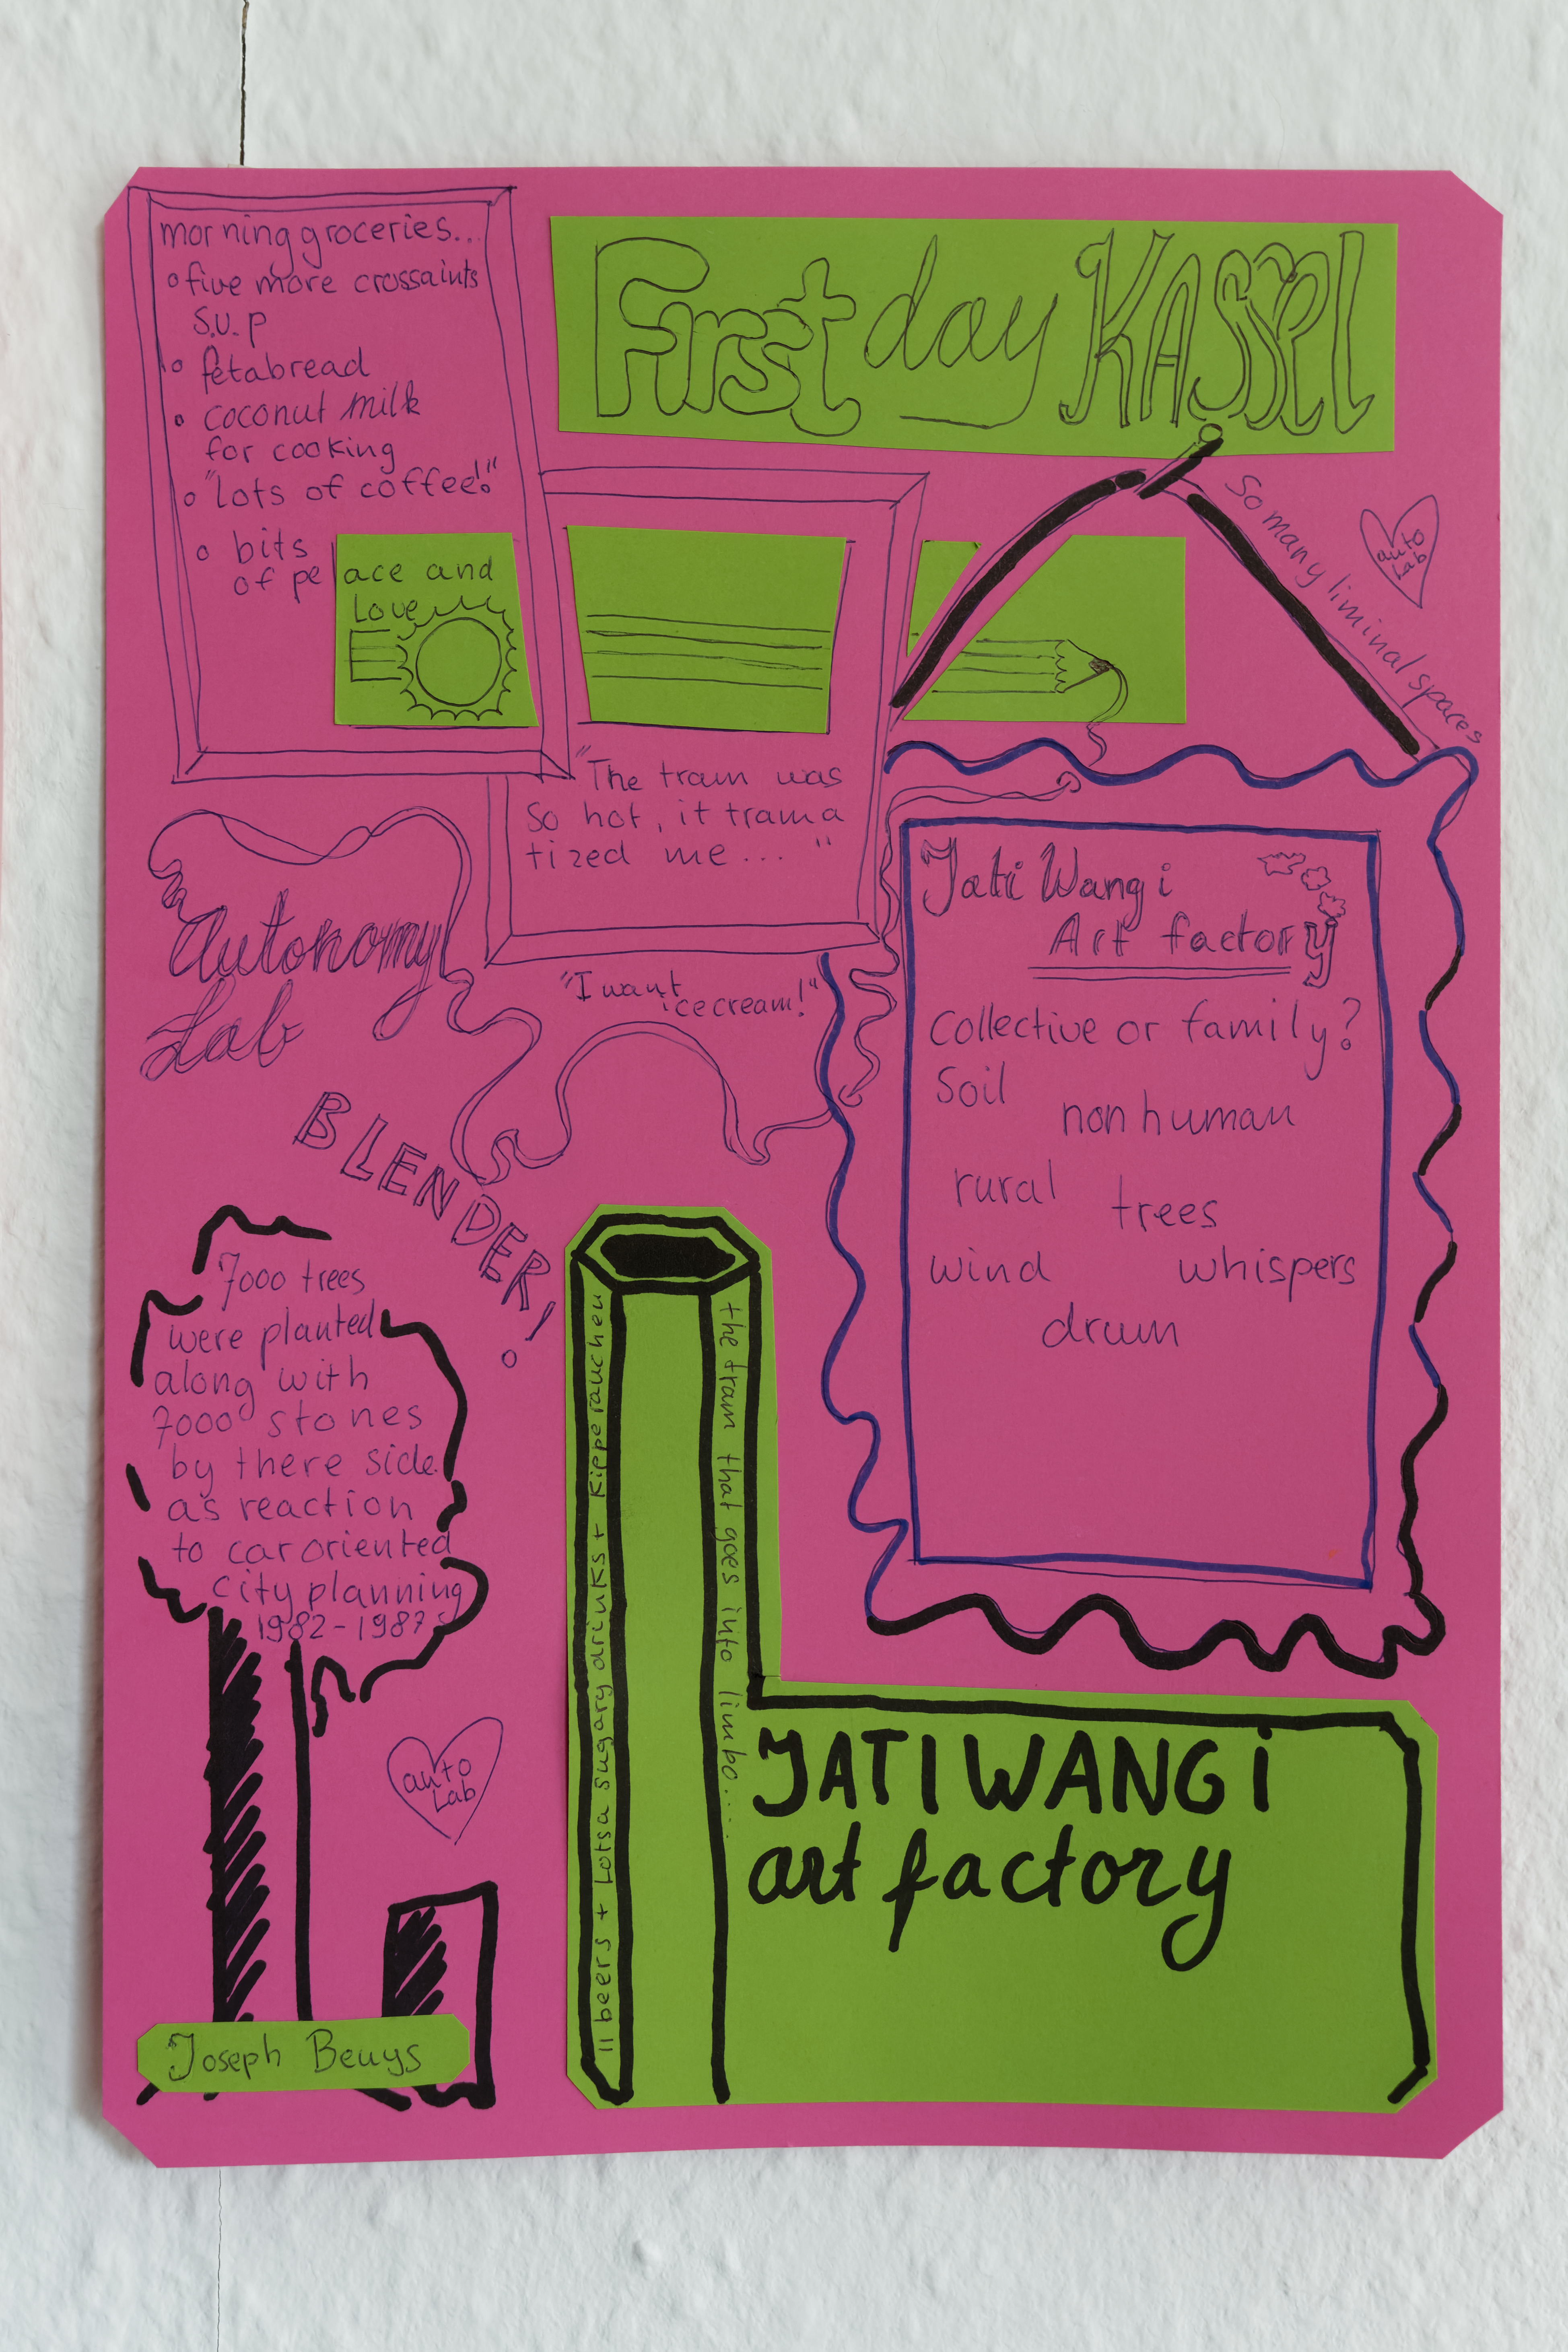 morning groceries...
five more crossaints
s.u.p
fetabread
coconut milk
for cooking
"lots of coffee!"
bits
of peace and
Love
First day KASSEL
So many liminal spaces
auto
Lab
"The train was
so hot, it trama
tized me... "
Autonomy
Lab
"I want
icecream!"
BLENDER!
Jati Wangi
Art factory
Collective or family?
Soil
non human
rural
trees
wind
whispers
drum
7000 trees
were planted
along with
7000 stones
by there side
as reaction
to car oriented
city planning
1982-1987s
auto
Lab
Joseph Beuys
11 beers + Lotsa sugary drinks + Kippe rauchen
the tram that goes into limbo....
JATIWANGi
art factory